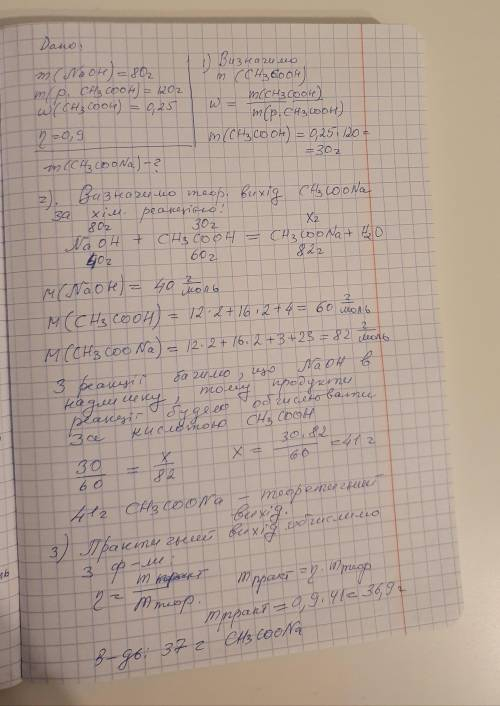 Дано:
m(NaOH)=80г
m(р. CH3COOH)=120г
w(CH3COOH)=0,25
η=0,9
m(CH3COONa)-?
1) Визначимо
m(CH3COOH)
w = m(CH3COOH) / m(р. CH3COOH)
m(CH3COOH)=0,25·120=
=30г
2). Визначимо теор. вихід CH3COONa
за хім. реакцією:
80г 30г xг
NaOH + CH3COOH = CH3COONa + H2O
40г 60г 82г
M(NaOH)= 40 г/моль
M(CH3COOH)=12·2+16·2+4=60 г/моль
M(CH3COONa)=12·2+16·2+3+23=82 г/моль
З реакції бачимо, що NaOH в
надлишку, тому продукти
реакції будемо обчислювати
за кислотою CH3COOH
30/60 = x/82 x = 30·82/60 =41г
41г CH3COONa – теоретичний
вихід.
3) Практичний вихід обчислимо
з ф-ли:
η = mпракт / mтеор. mпракт=η·mтеор
mпракт=0,9·41=36,9г
В-дь: 37 г CH3COONa